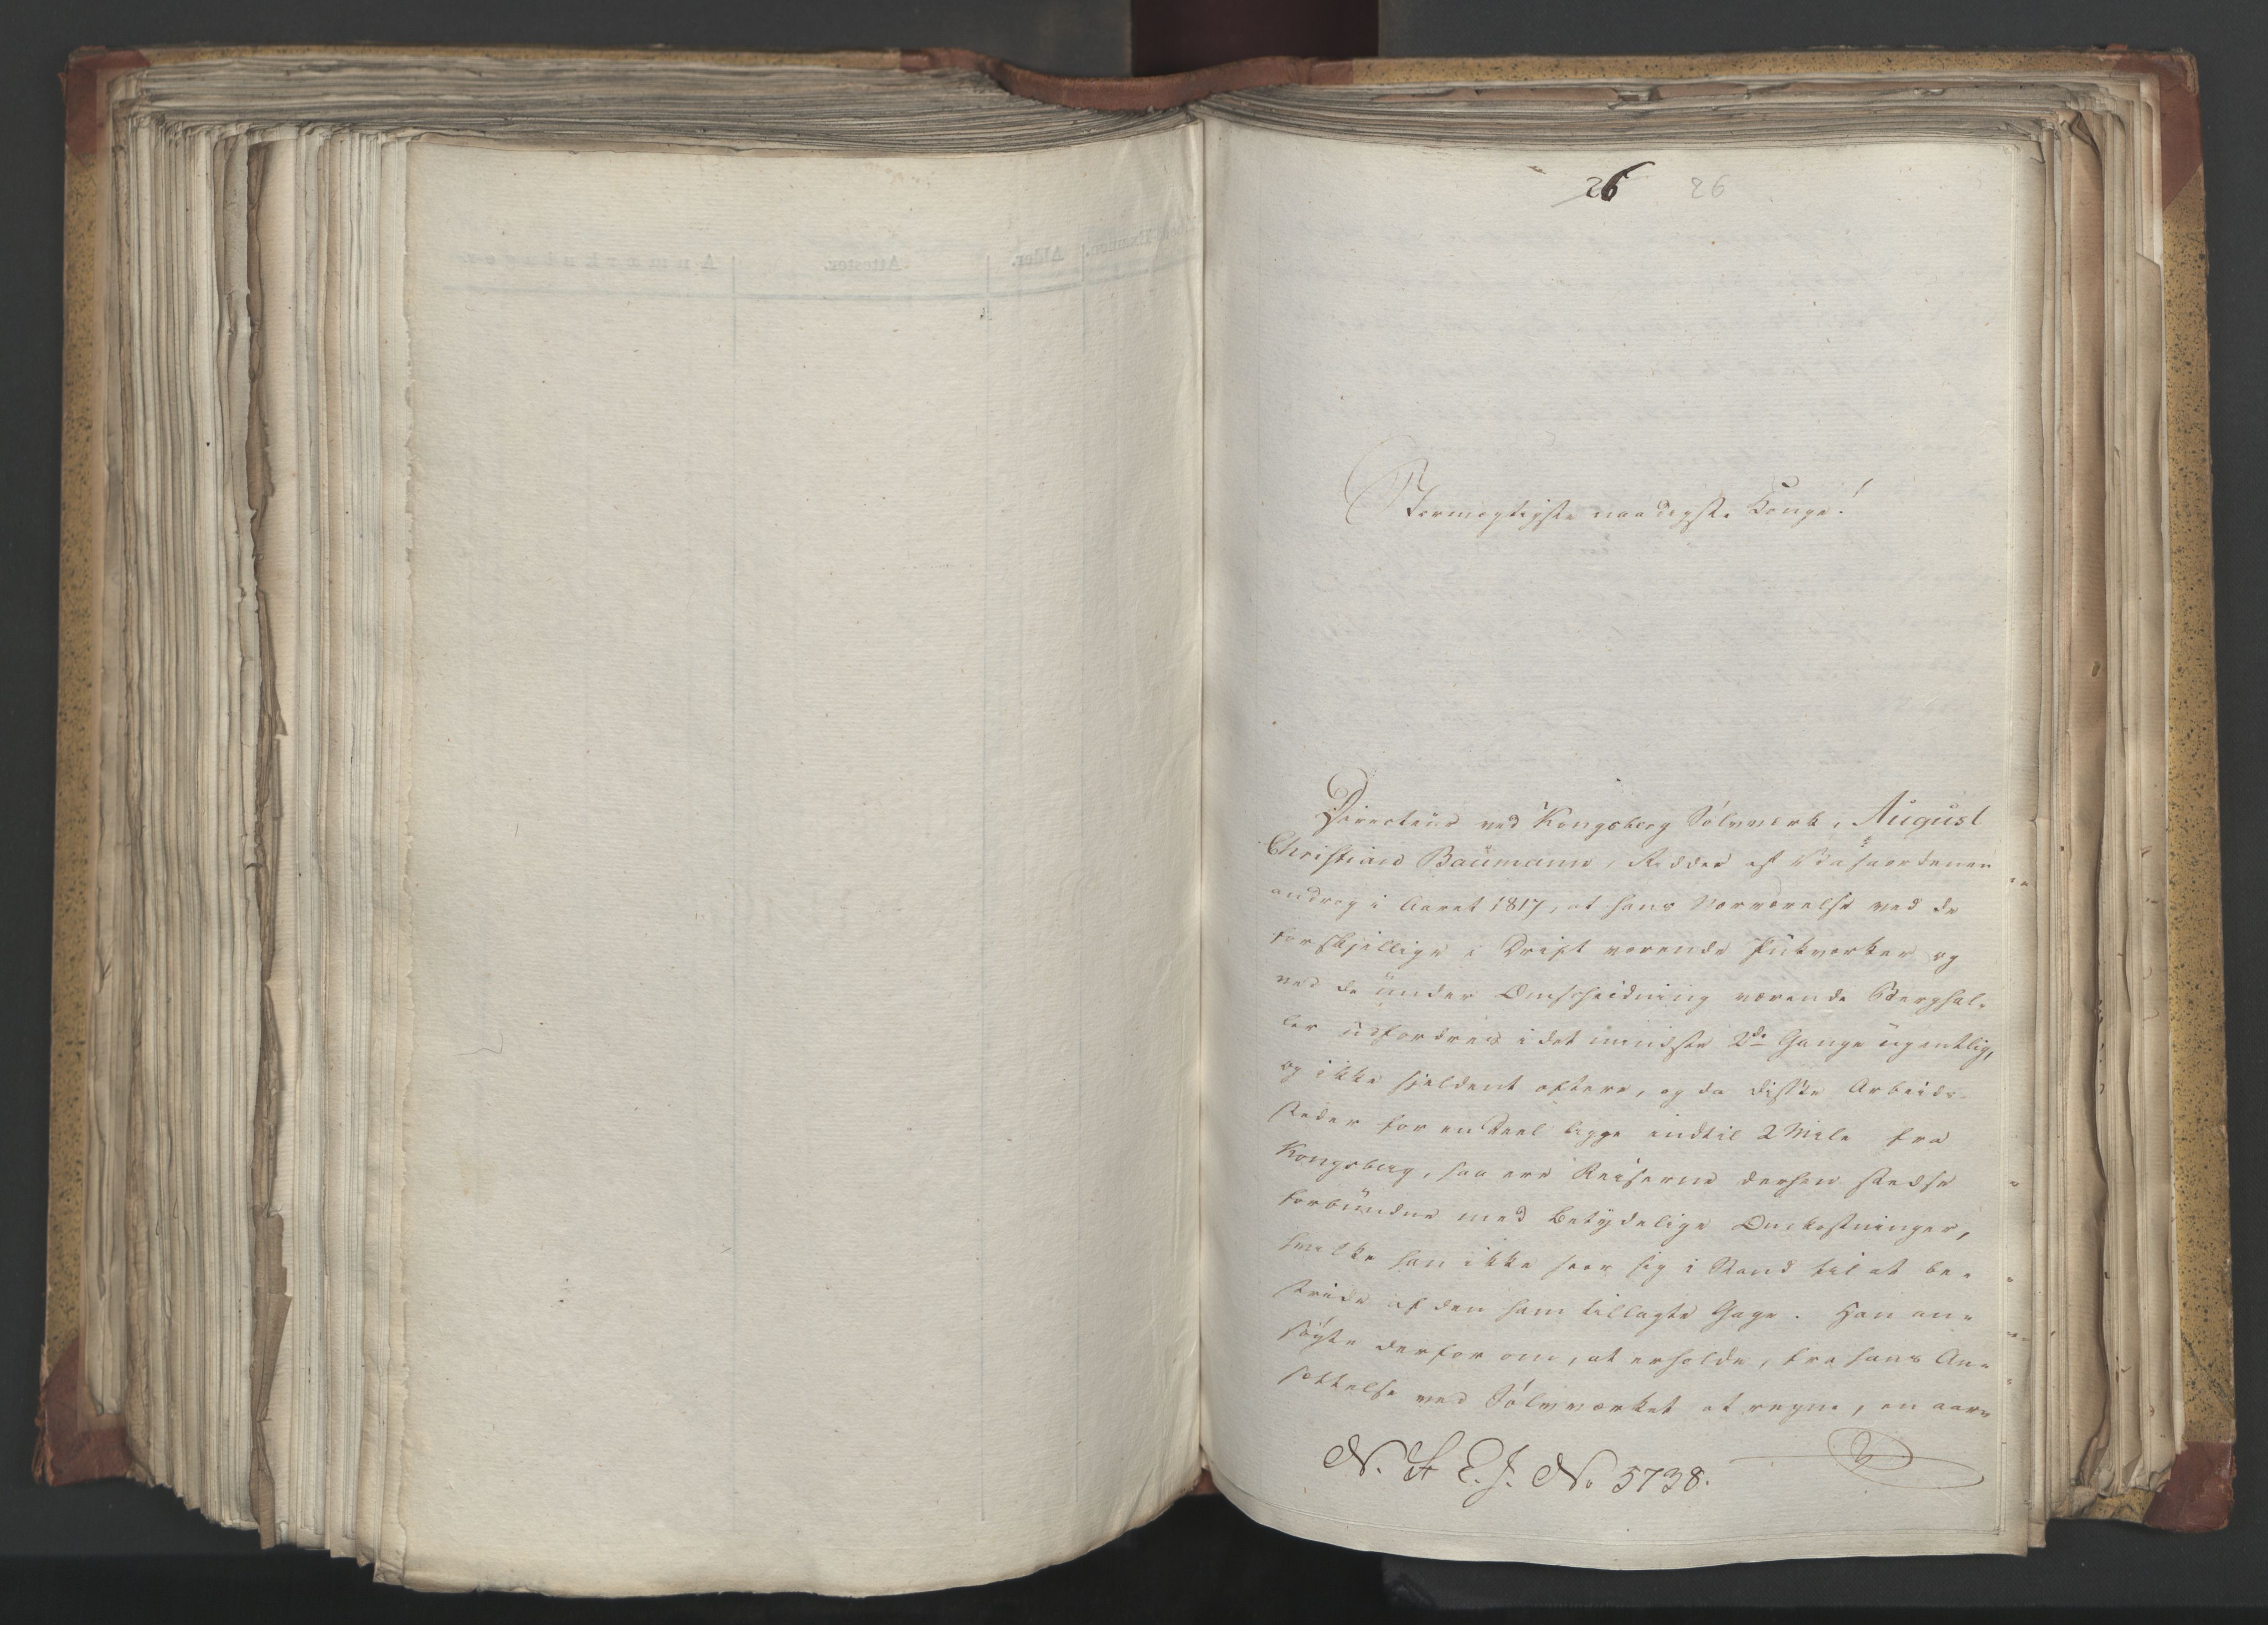 26 26
Stormægtigste naadigste Konge!
Directeur ved Kongsberg Sølvverk, August
Christian Baumann, Ridder af Vasaordenen
androg i Aaret 1817, at hans Nærværelse ved de
forskjellige i Drift værende Pukværker og
ved de under Omscheidning værende Berghal-
ler udfordres i det mindste 2de Gange ugentlig,
og ikke sjeldent oftere, og da disse Arbeids-
steder for en Deel ligge indtil 2 Mile fra
Kongsberg, saa ere Reiserne derhen stedse
forbundne med betydelige Omkostninger,
hvilke han ikke seer sig i Stand til at be-
stride af den ham tillagte Gage. Han an-
søgte derfor om, at erholde, fra hans An-
sættelse ved Sølvværket at regne, en aar-
N. St E. J. No 5738.